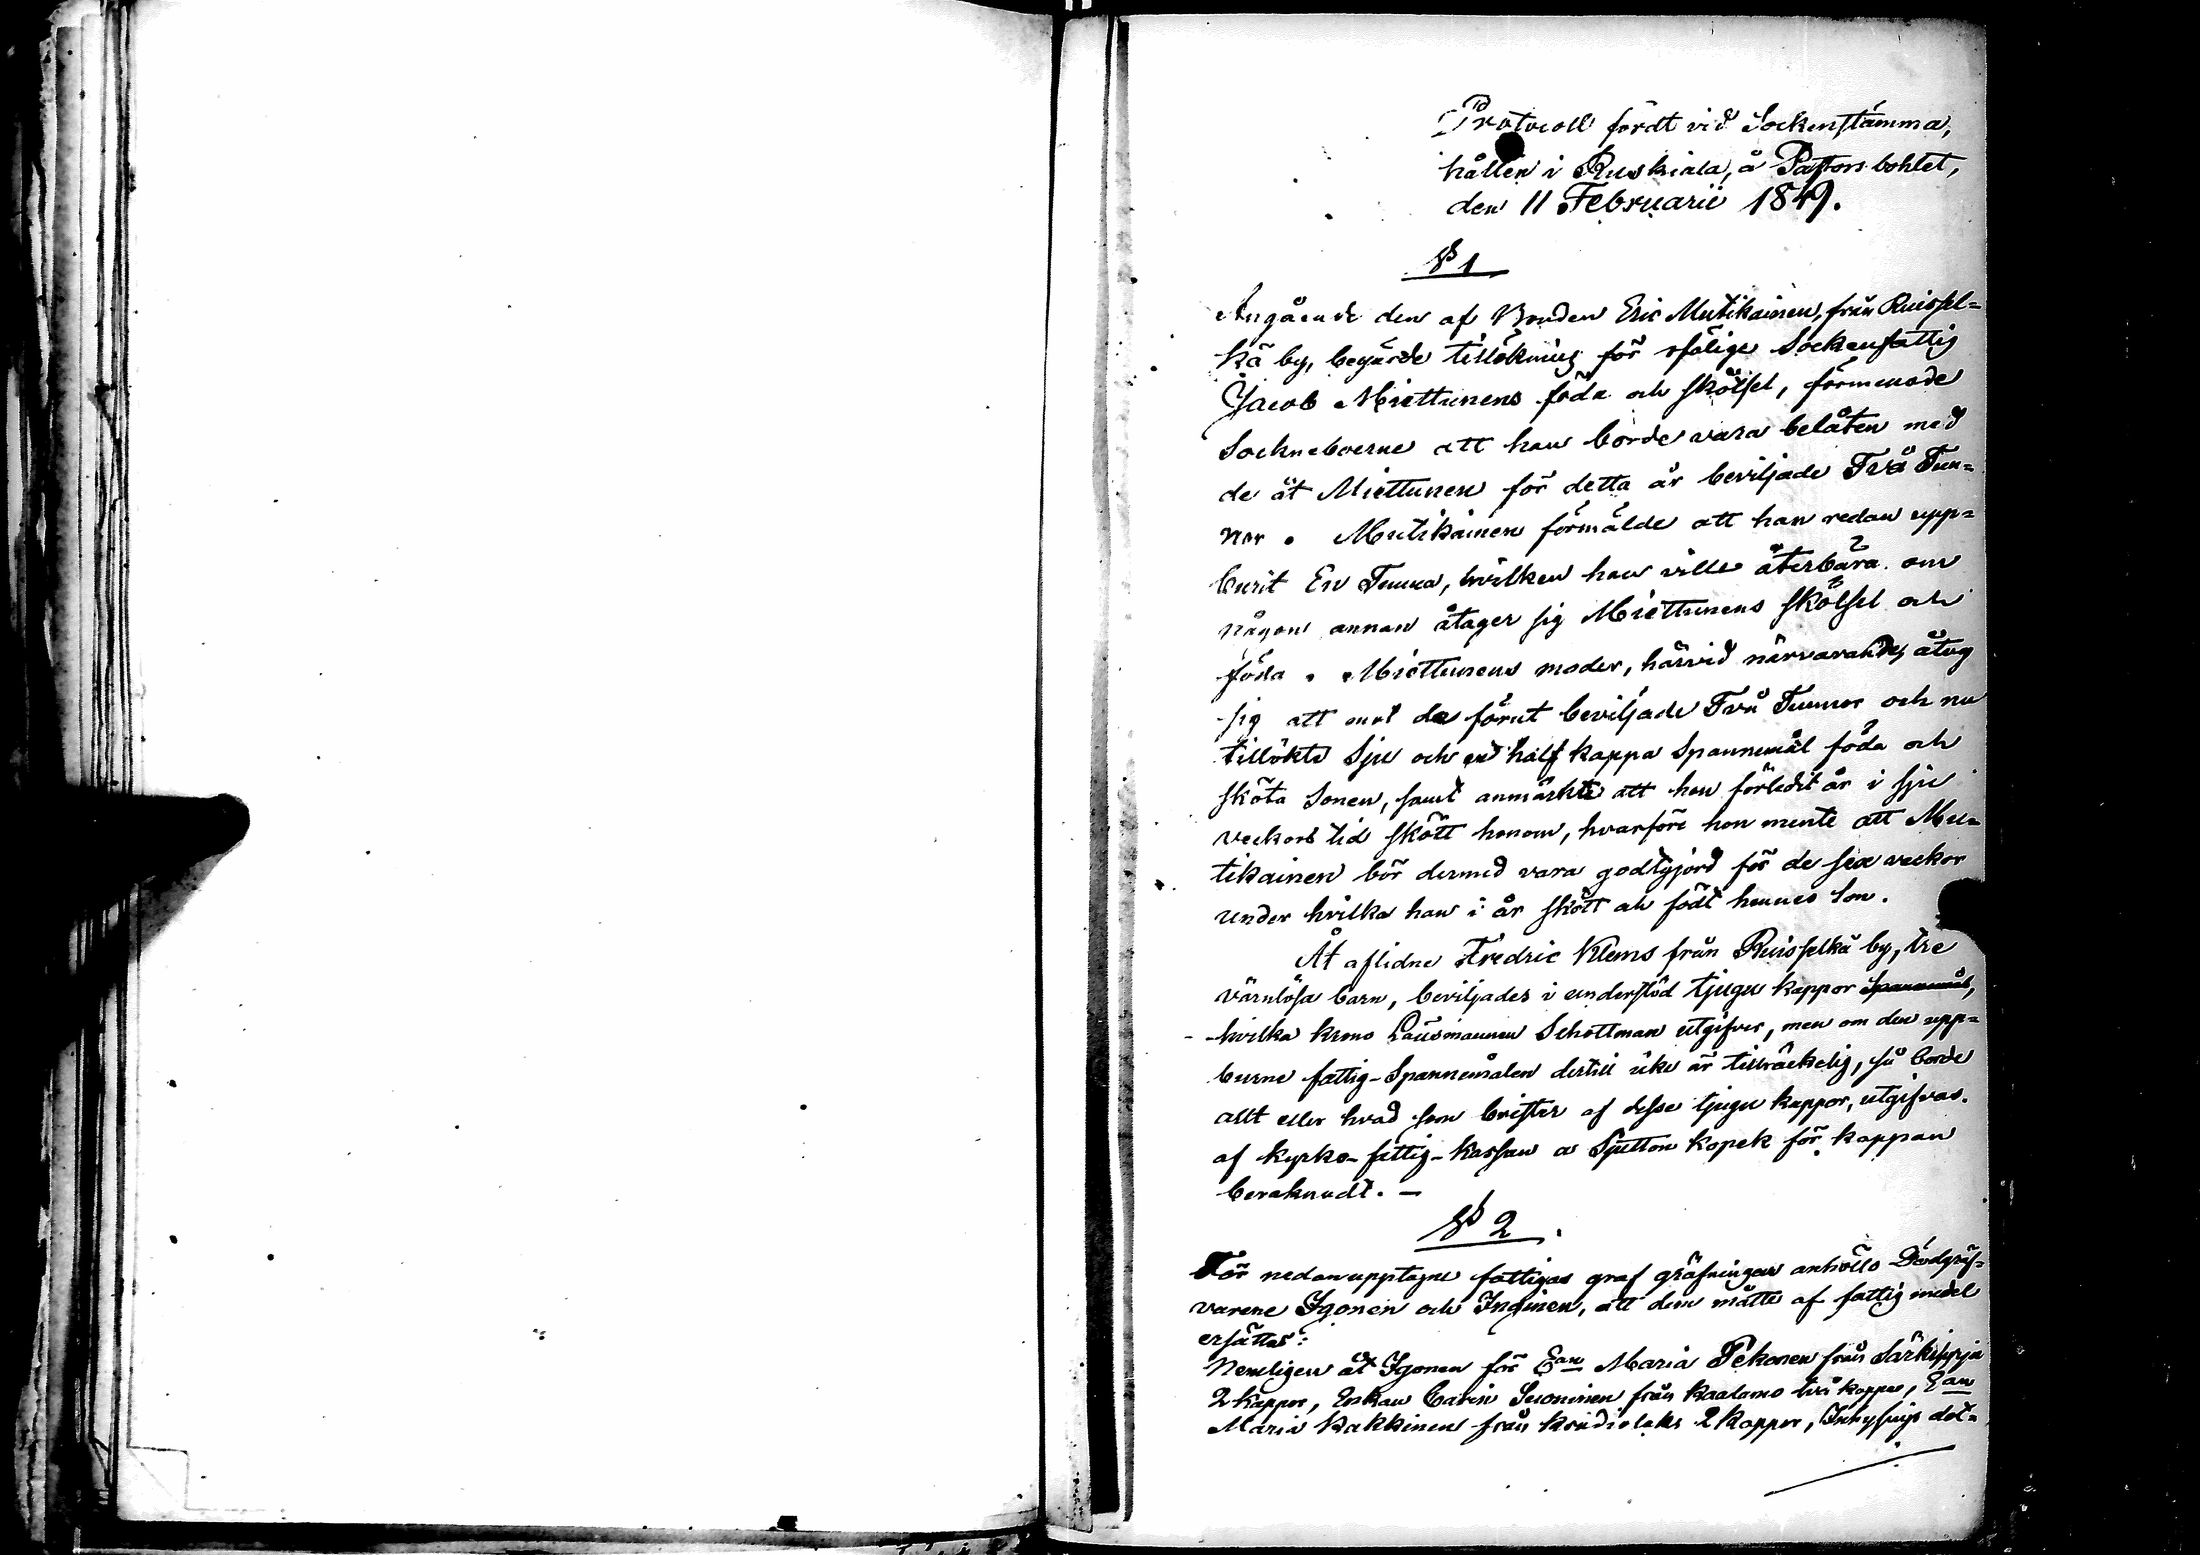 Protocoll fördt vid Sockenstämma,
hållen i Ruskiala, å Pastors bohlet,
den 11 Februarii 1849.
§ 1
Angående den af Bonden Eric Mutikainen, från Ruissel=
kä by, begärde tillökning för ofälige Sockenfattig
Jacob Miettunens föda och skötsel, förmenade
Sockneboerne att han borde vara belåten med
de åt Miettunen för detta år beviljade Två Tun=
nor. Mutikainen förmälde att han redan upp=
burit En Tunna, hvilken han ville återbära om
någon annan åtager sig Miettunens skötsel och
föda. Miettunens moder, härvid närvarande, åtog
sig att mot de förut beviljade Två Tunnor och nu
tillökte Sju och en half kappa Spannemål föda och
sköta Sonen, samt anmärkte att hon förledit år i sju
veckors tid skött honom, hvarföre hon mente att Mu=
tikainen bör dermed vara godtgjord för de sex veckor
under hvilka han i år skött och födt hennes Son.
Åt aflidne Fredric Klems från Ruisselkä by, tre
värnlösa barn, beviljades i understöd tjugu kappor Spannmål,
hvilka krono Länsmannen Schottman utgifver, men om den upp=
burne fattig-Spannemålen dertill icke är tillräckelig, så borde
allt eller hvad som brister af desse tjugu kappor, utgifvas
af kyrko-fattig-kassan a Sjutton kopek för kappan
beraknadt. —
§ 2.
För nedanupptagne fattigas graf gräfningar anhöllo Dödgräf=
varene Igonen och Inginen, att dem måtte af fattig medel
ersättas:
Nemligen åt Igonen för E:an Maria Pekonen från Särkisyrjä
2 kappor, Enkan Carin Suoninen från Kaalamo två kappor, E:an
Maria Kakkinen från 2 kappor, Inhysings dot=